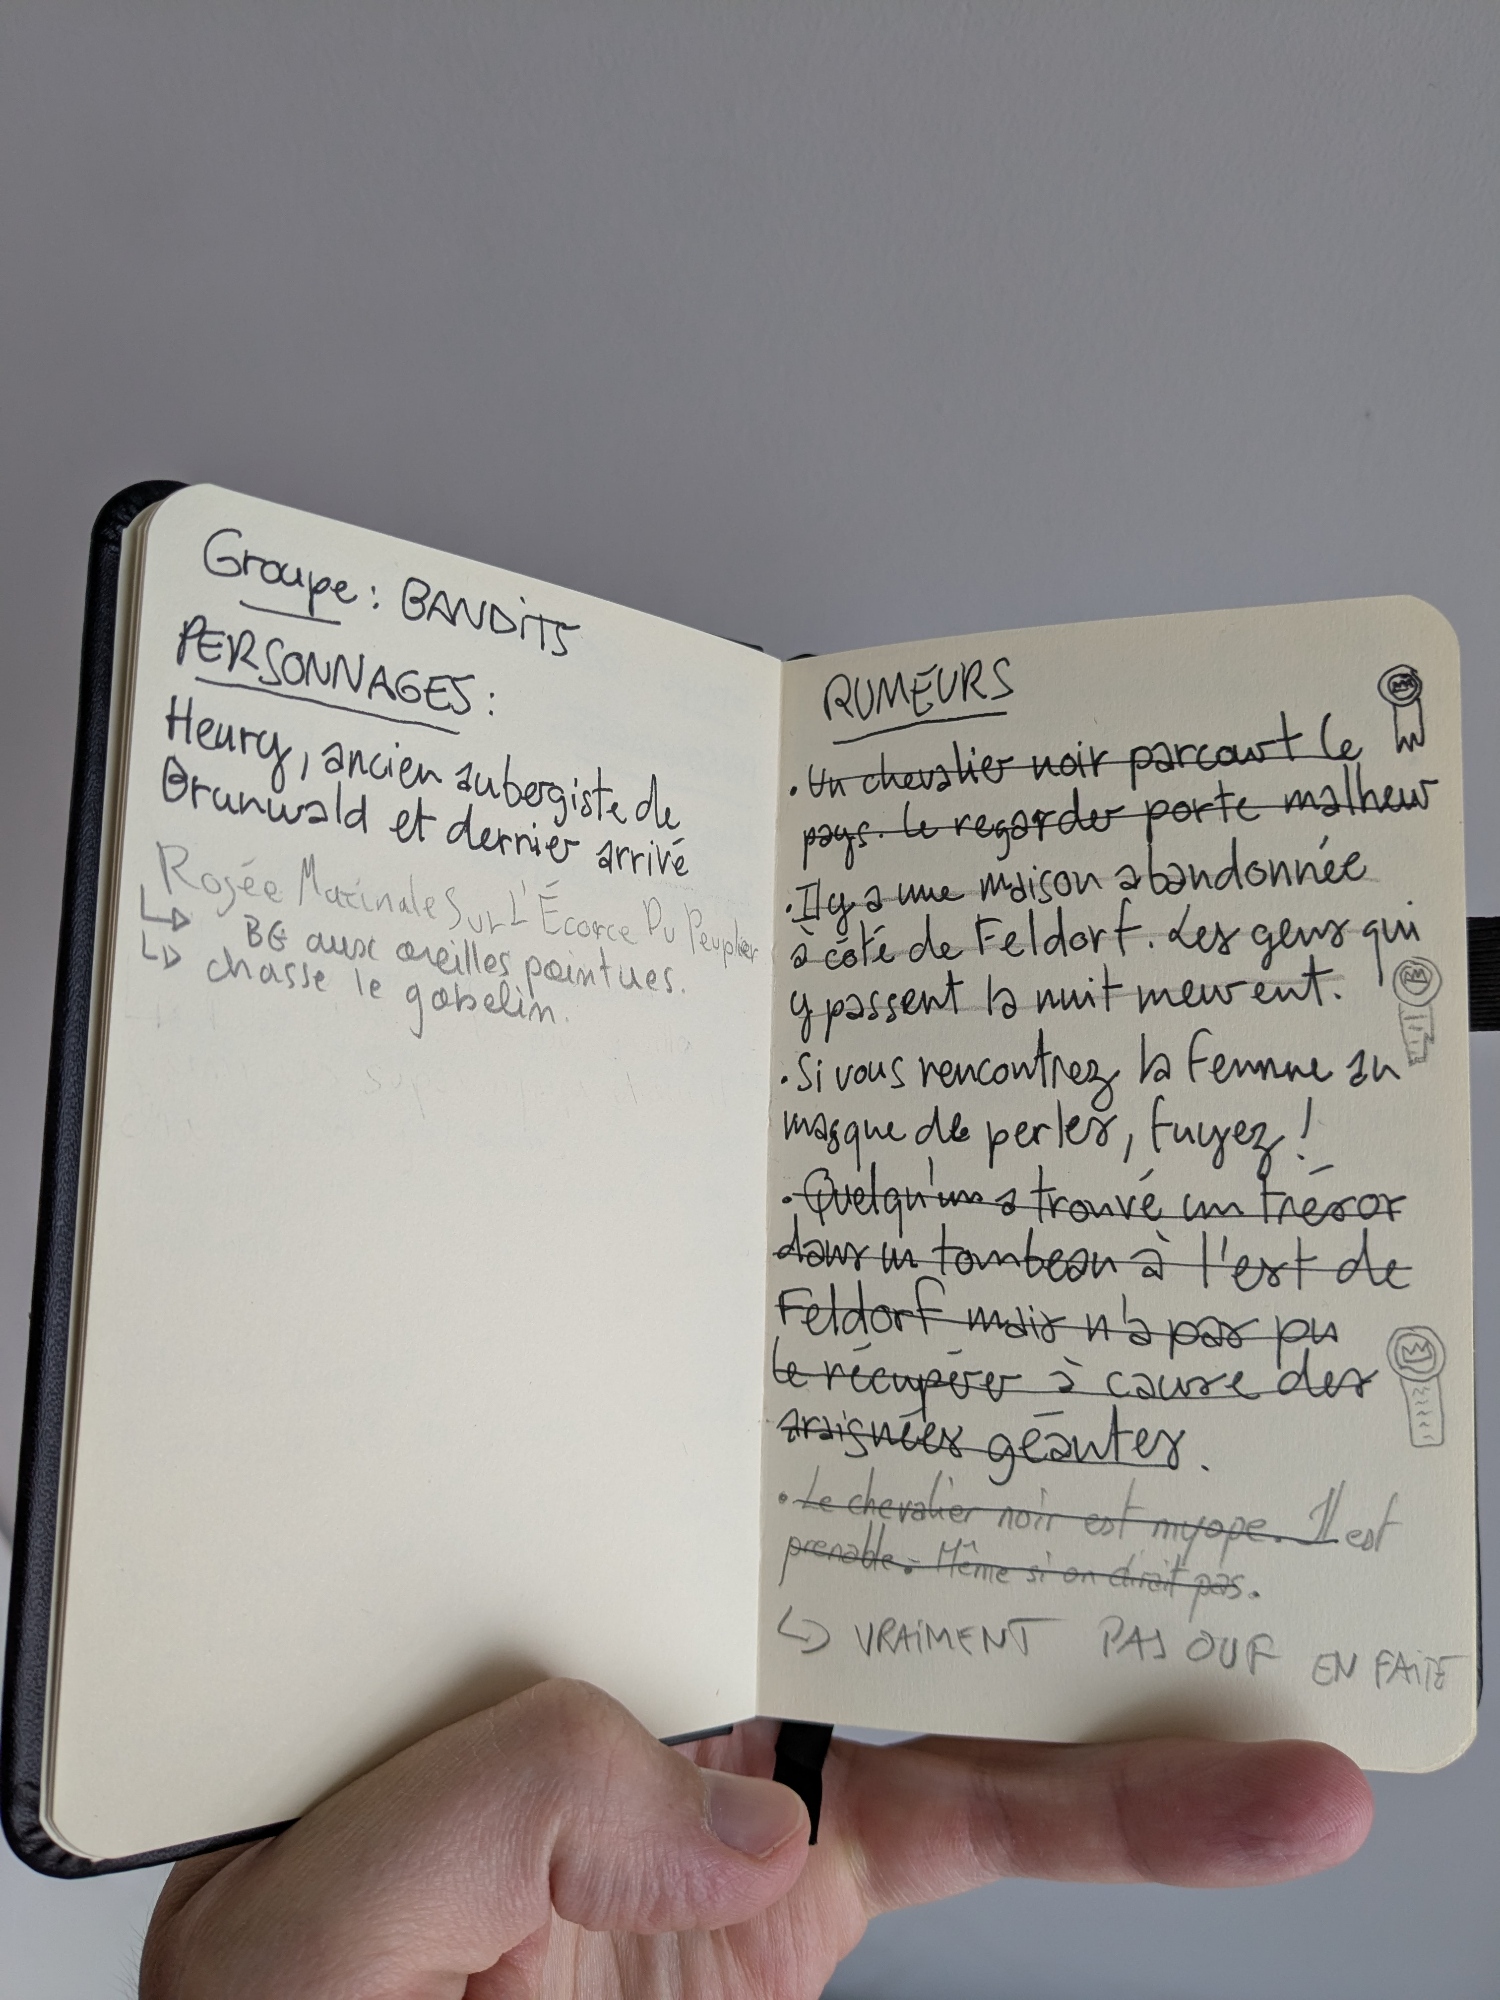 Groupe: BANDITS
PERSONNAGES:
Heury, ancien aubergiste de
Brunwald et dernier arrivé
Rosée Matinale Sur L'Écorce Du Peuplier
↳ BG aux oreilles pointues.
↳ chasse le gobelin.
RUMEURS
• Un chevalier noir parcourt le
pays. Le regarder porte malheur
• Il y a une maison abandonnée
à côté de Feldorf. Les gens qui
y passent la nuit meurent.
• Si vous rencontrez la femme au
masque de perles, fuyez !
• Quelqu'un a trouvé un trésor
dans un tombeau à l'est de
Feldorf mais n'a pas pu
le récupérer à cause des
araignées géantes.
• Le chevalier noir est myope. Il est
prenable. Même si on dirait pas.
↳ VRAIMENT PAS OUF EN FAITE